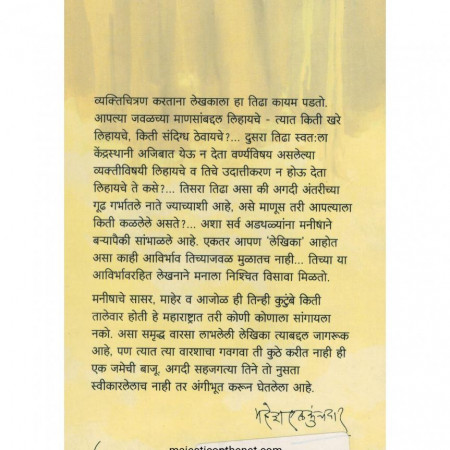 व्यक्तिचित्रण करताना लेखकाला हा तिढा कायम पडतो.
आपल्या जवळच्या माणसांबद्दल लिहायचे - त्यात किती खरे
लिहायचे, किती संदिग्ध ठेवायचे?... दुसरा तिढा स्वतःला
केंद्रस्थानी अजिबात येऊ न देता वर्ण्यविषय असलेल्या
व्यक्तीविषयी लिहायचे व तिचे उदात्तीकरण न होऊ देता
लिहायचे ते कसे?... तिसरा तिढा असा की अगदी अंतरीच्या
गूढ गर्भातले नाते ज्याच्याशी आहे, असे माणूस तरी आपल्याला
किती कळलेले असते?... अशा सर्व अडथळ्यांना मनीषाने
बऱ्यापैकी सांभाळले आहे. एकतर आपण 'लेखिका' आहोत
असा काही आविर्भाव तिच्याजवळ मुळातच नाही... तिच्या या
आविर्भावरहित लेखनाने मनाला निश्चित विसावा मिळतो.
मनीषाचे सासर, माहेर व आजोळ ही तिन्ही कुटुंबे किती
तालेवार होती हे महाराष्ट्रात तरी कोणी कोणाला सांगायला
नको. असा समृद्ध वारसा लाभलेली लेखिका त्याबद्दल जागरूक
आहे, पण त्यात त्या वारशाचा गवगवा ती कुठे करीत नाही ही
एक जमेची बाजू. अगदी सहजगत्या तिने तो नुसता
स्वीकारलेलाच नाही तर अंगीभूत करून घेतलेला आहे.
महेश एलकुंचवार
majesticonthenet.com